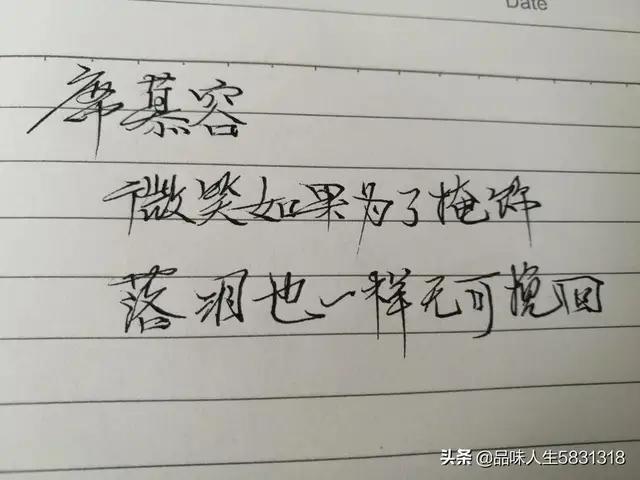 Date
席慕容
微笑如果为了掩饰
落泪也一样无可挽回
头条 @品味人生5831318